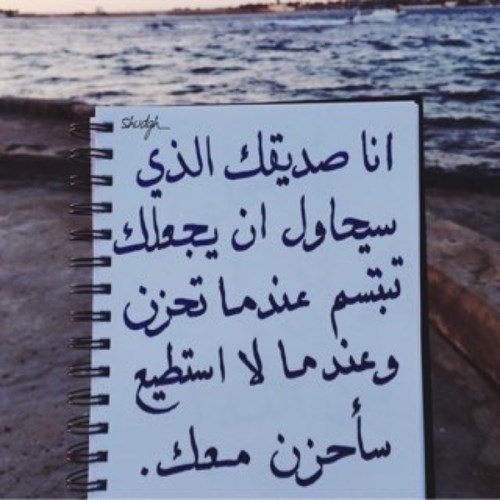 Shudgh_
انا صديقك الذي
سيحاول ان يجعلك
تبتسم عندما تحزن
وعندما لا استطيع
سأحزن معك.